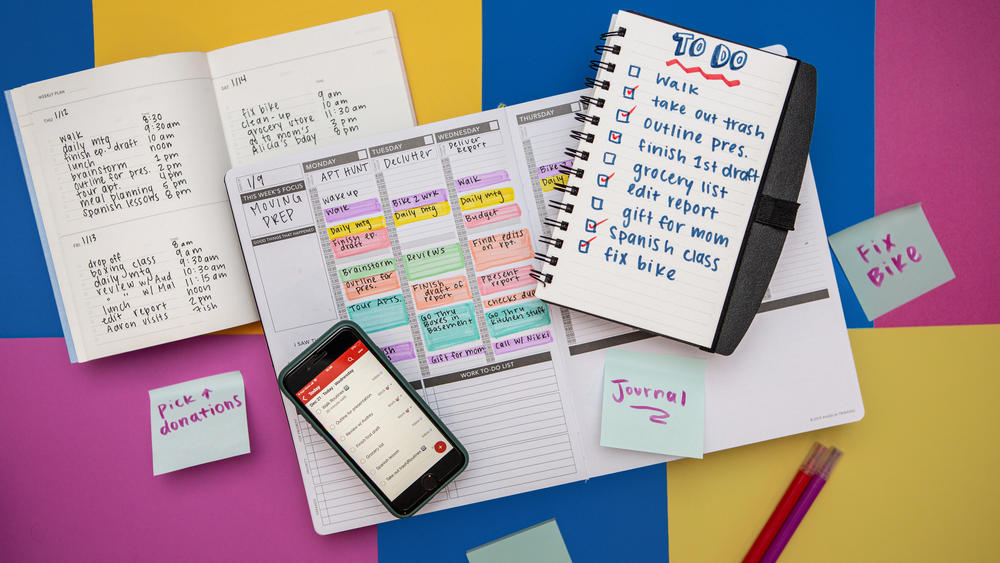 WEEKLY PLAN
THU 1/12
walk
daily mtg 9:30am
finish ep. draft 10am
lunch noon
brainstorm 1 pm
outline for pres. 2 pm
tour apt. 4 pm
meal planning
spanish lessons 8 pm
FRI 1/13
drop off 8am
boxing class 9am
daily mtg 9:30am
review w/Aud 10:30am
" " w/ Mai 11:15am
lunch noon
edit report 2pm
Aaron visits 7ish
SAT 1/14
fix bike 9am
clean-up 10 am
grocery store 11:30 am
to mom's
Alicia's bday 8 pm
1/9
THIS WEEK'S FOCUS
MOVING
PREP
GOOD THINGS THAT HAPPENED
MONDAY
APT HUNT
wake up
Walk
Daily mtg
Finish ep.
draft
Brainstorm
Outline for
pres.
Tour Apts.
TUESDAY
Declutter
Bike 2 wrk
Daily mtg
Reviews
Finish
draft of
report
Go Thru
Boxes in
Basement
Gift for mom
WEDNESDAY
Deliver
Report
Walk
Daily mtg
Budget
Final edits
on rpt.
Present
report
checks due
Go Thru
kitchen stuff
Call w/ Nikki
THURSDAY
Bike
Daily
WORK TO-DO LIST
TO DO
walk
take out trash
outline pres.
finish 1st draft
grocery list
edit report
gift for mom
spanish class
fix bike
Fix
Bike
Journal
Pick ↑
donations
Today
Dec 21 · Today · Wednesday
Walk Routines
Outline for presentation
Review w Audrey
Finish first draft
Grocery list
Spanish lesson
Take out trash